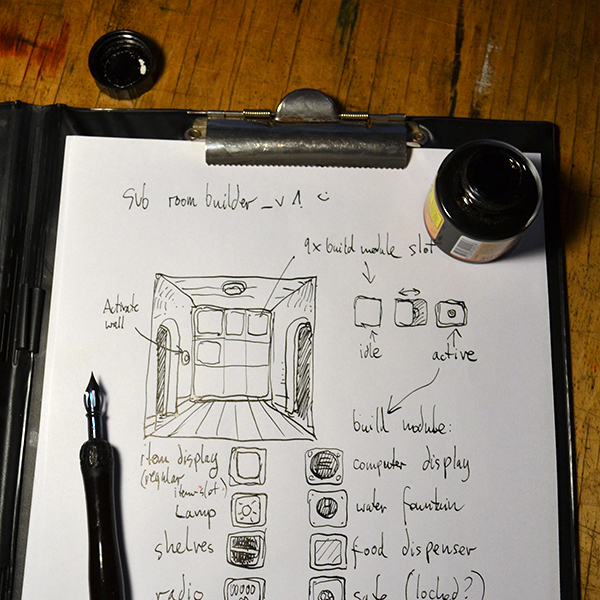 Sub room builder _v1. :)
9x build module slot
Activate
wall
idle
active
build module:
item display
(regular
item-slot)
computer display
Lamp
water fountain
shelves
food dispenser
radio
safe (locked?)